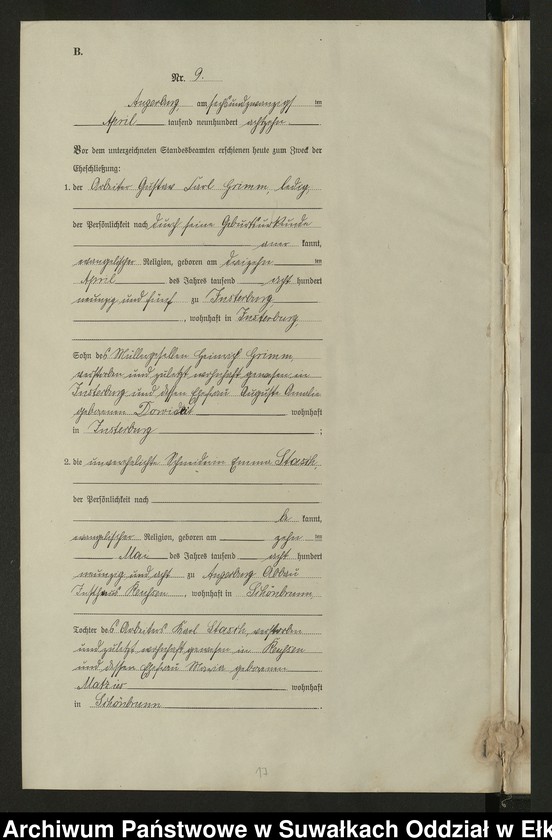 B.
Nr. 9.
Angerburg, am sechsundzwanzigsten
April tausend neunhundert achtzehn.
Vor dem unterzeichneten Standesbeamten erschienen heute zum Zweck der
Eheschließung:
1. der Arbeiter Gustav Carl Grimm, ledig,
der Persönlichkeit nach durch seine Geburtsurkunde
aner kannt,
evangelischer Religion, geboren am dreizehnten
April des Jahres tausend acht hundert
neunzig und fünf zu Insterburg
, wohnhaft in Insterburg,
Sohn des Müllergesellen Heinrich Grimm,
verstorben und zuletzt wohnhaft gewesen in
Insterburg und dessen Ehefrau Auguste Amalie
geborenen wohnhaft
in Insterburg ;
2. die unverehelichte Schneiderin Emma Stasch,
der Persönlichkeit nach
be kannt,
evangelischer Religion, geboren am zehnten
Mai des Jahres tausend acht hundert
neunzig und acht zu Angerburg Abbau
, wohnhaft in Schönbrunn,
Tochter des Arbeiters Karl Stasch, verstorben
und zuletzt wohnhaft gewesen in
und dessen Ehefrau Maria geborenen
wohnhaft
in Schönbrunn.
17
Archiwum Państwowe w Suwałkach Oddział w Ełk